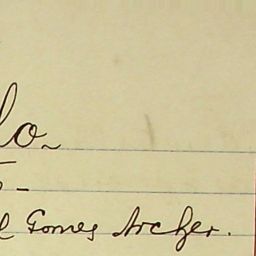 lo
Gomes Archer.